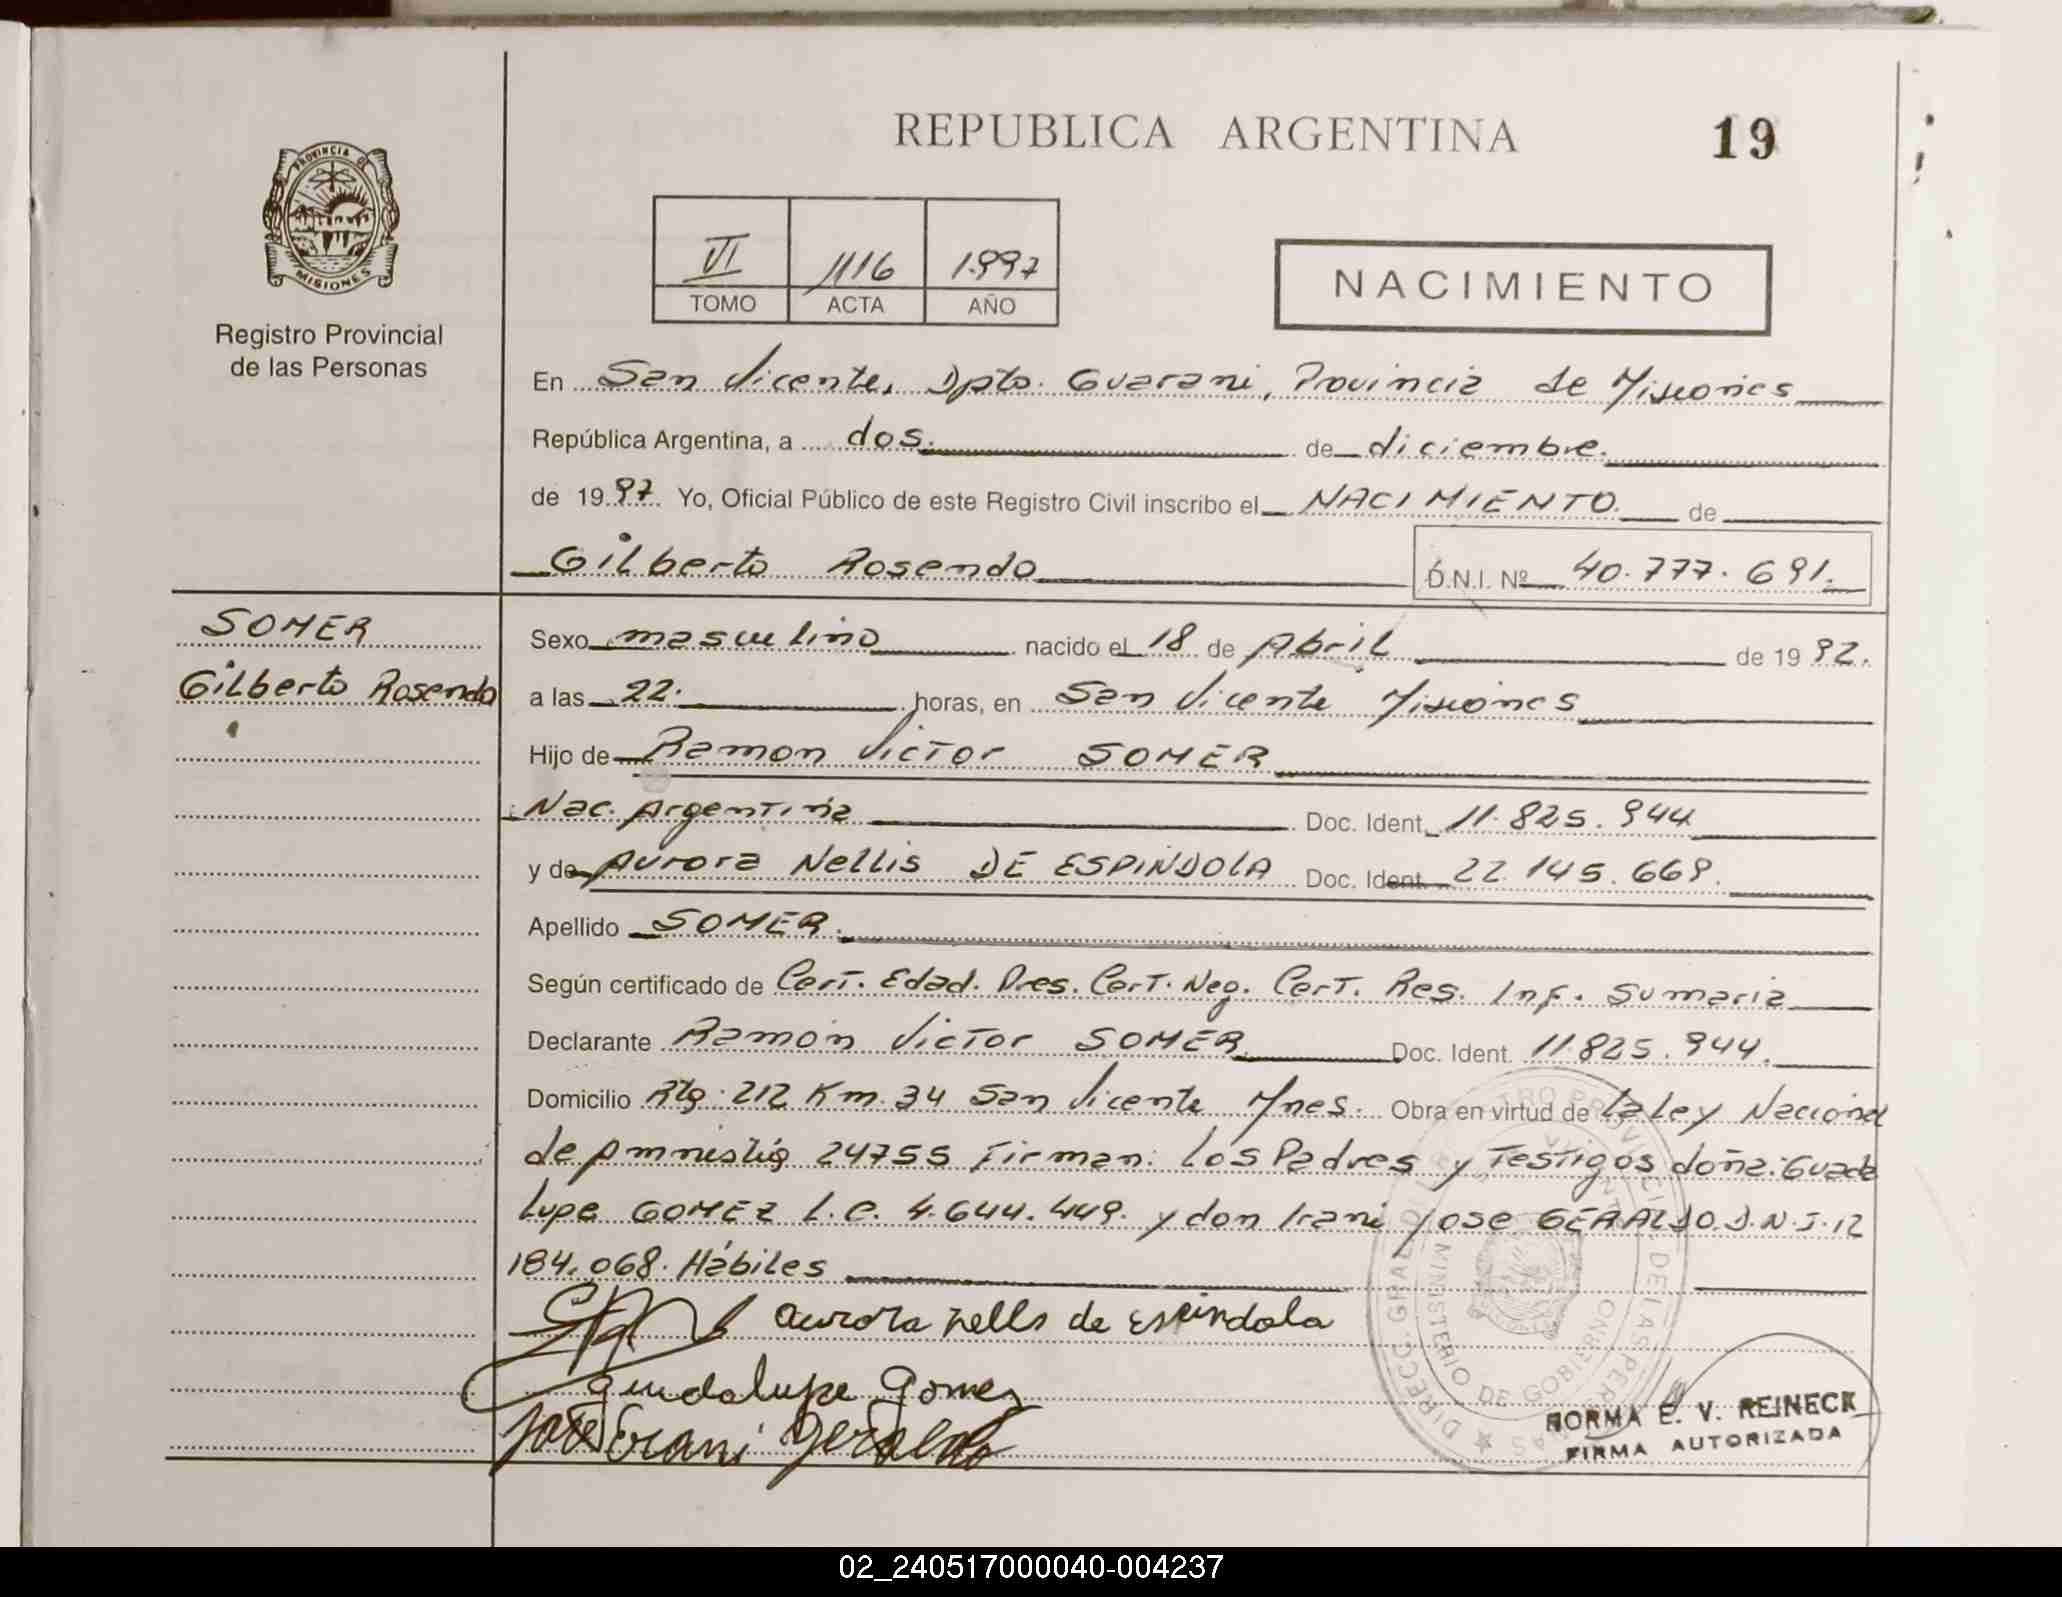 REPUBLICA ARGENTINA
19
PROVINCIA DE
MISIONES
Registro Provincial
de las Personas
VI 1116 1.997
TOMO ACTA AÑO
NACIMIENTO
En San Vicente, Dpto. Guarani, Provincia de Misiones
República Argentina, a dos. de diciembre.
de 1997. Yo, Oficial Público de este Registro Civil inscribo el NACIMIENTO. de
Gilberto Rosendo D.N.I. Nº 40.777.691.
SOMER
Gilberto Rosendo
Sexo masculino nacido el 18 de Abril de 1992.
a las 22. horas, en San Vicente Misiones
Hijo de Ramon Victor SOMER
Nac. Argentina Doc. Ident. 11.825.944
y de Aurora Nellis DE ESPINDOLA Doc. Ident. 22.145.669.
Apellido SOMER.
Según certificado de Cert. Edad. Pres. Cert. Neg. Cert. Res. Inf. Sumaria
Declarante Ramón Victor SOMER Doc. Ident. 11.825.944.
Domicilio Rta: 212 Km. 34 San Vicente Mnes. Obra en virtud de La Ley Nacional
de Amnistia 24755 Firman: Los Padres y Testigos doña: Guada
lupe GOMEZ L.C. 4.644.449. y don Irani Jose GERALDO D.N.I. 12
184.068. Hábiles
aurora nells de espindola
guadalupe Gomez
José Erani Geraldo
DIRECC. GRAL. DEL REGISTRO PROVINCIAL DE LAS PERSONAS
MINISTERIO DE GOBIERNO
NORMA E. V. REINECK
FIRMA AUTORIZADA
02_240517000040-004237